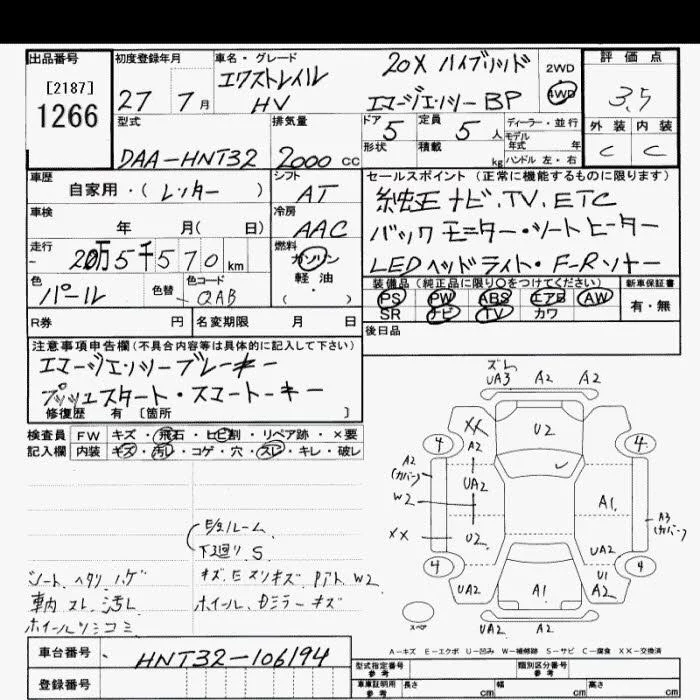 出品番号
[2187]
1266
初度登録年月
27 7月
車名・グレード
エクストレイル 20X ハイブリッド
HV エマージェンシーBP
2WD
4WD
評価点
3.5
外装 内装
C C
型式
DAA-HNT32
排気量
2000 cc
ドア 5
定員 5 人
形状
積載 kg
ディーラー・並行
モデル
年式 年
ハンドル 左・右
車歴
自家用・(レンター)
シフト
AT
車検
年 月( 日)
冷房
AAC
走行
- 20万5千570 km
燃料
ガソリン
軽・油
( ・ )
色
パール
色替
カラーコード
QAB
R券 円
名変期限 月 日
セールスポイント(正常に機能するものに限ります)
純正ナビ.TV.ETC
バックモニター・シートヒーター
LEDヘッドライト・F-Rソナー
装備品(純正品に限り○をつけてください)
新車保証書
PS PW ABS エアB AW
SR ナビ TV カワ
有・無
後日品
注意事項申告欄(不具合内容等は具体的に記入して下さい)
エマージェンシーブレーキ
プッシュスタート・スマートキー
修復歴 有 [箇所 ]
検査員 FW キズ・飛石・ヒビ割・リペア跡・×要
記入欄 内装 キズ・汚れ・コゲ・穴・スレ・キレ・破レ
E/gルーム
下廻り S
シート ヘタリ ハゲ
キズ E スリキズ Pアト W2
車内 スレ 汚レ
ホイール.Dミラー キズ
ホイールツミコミ
ズレ
UA3 A2 A2
XX
A2
U2
4
4
A2
(カバー)
UA2
W2
A1
A3
(カバー)
XX
U2
UA2
4
U1
4
UA2
A1
A2
スペア
UA2 A2
A-キズ E-エクボ U-凹み W-補修跡 S-サビ C-腐食 XX-交換済
車台番号
HNT32-106194
登録番号
型式指定番号
参考
類別区分番号
参考
車庫証明用
参考
長さ cm
幅 cm
高さ cm